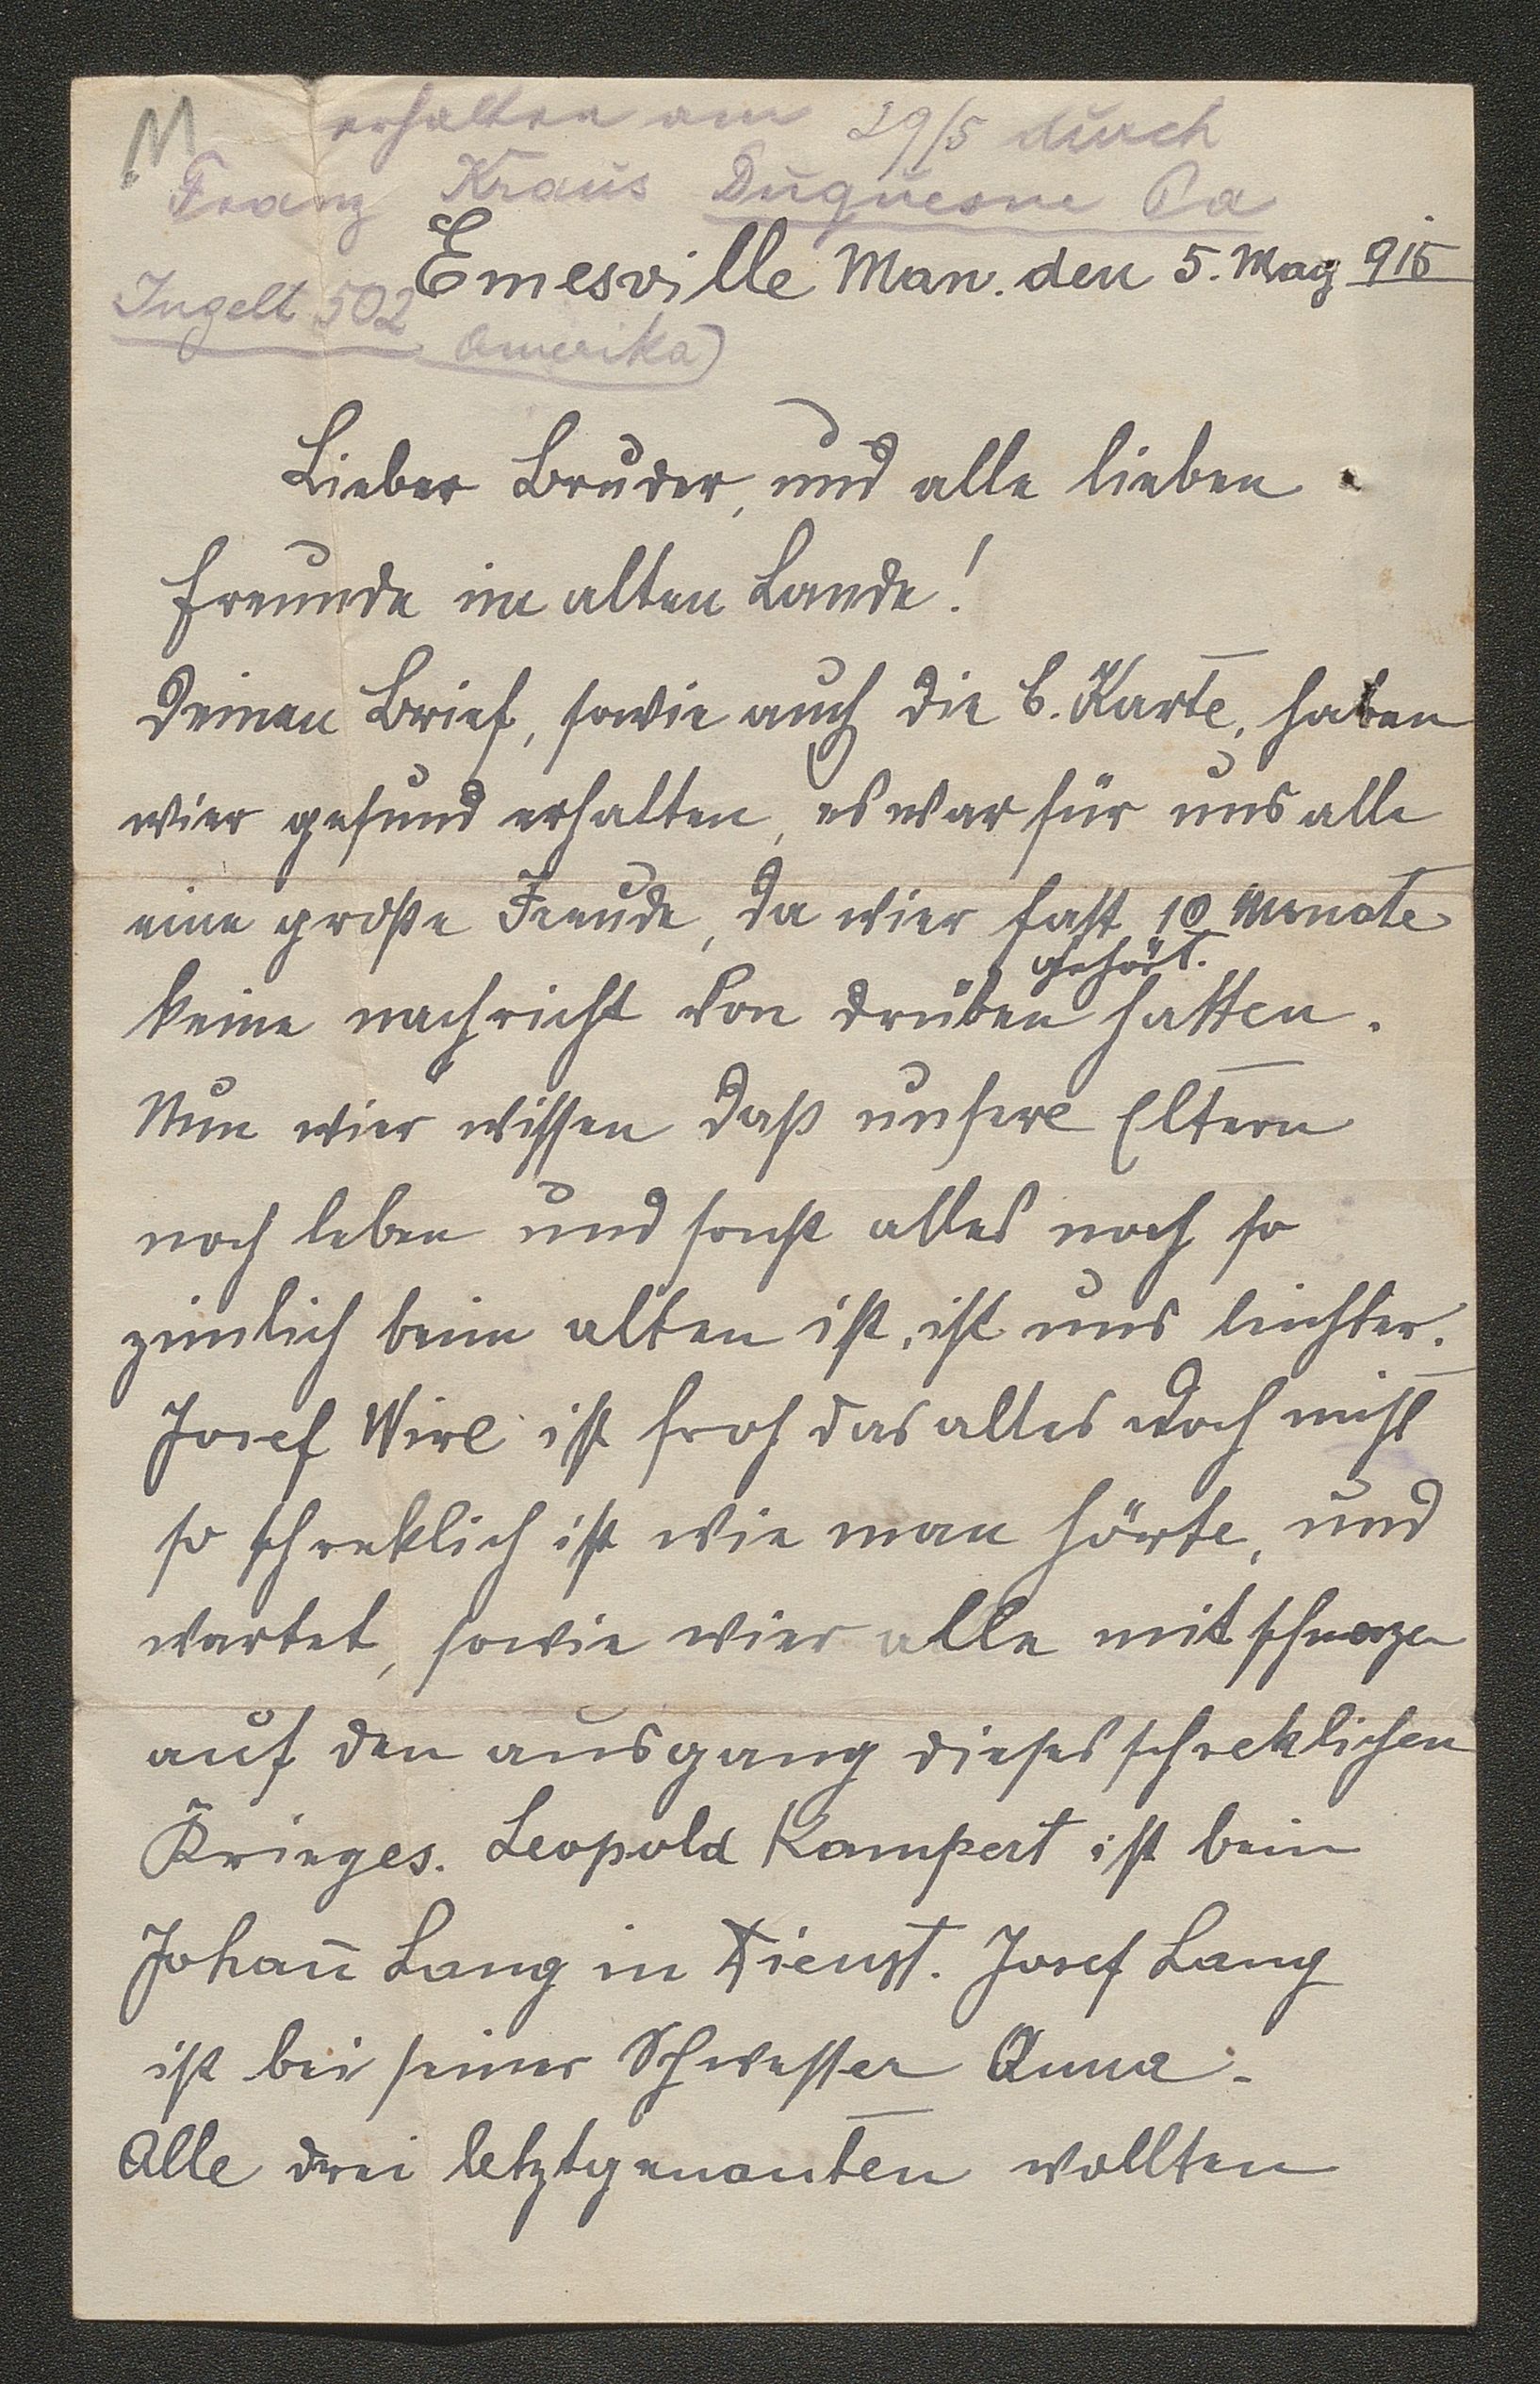 M
erhalten am 29/5 durch
Franz Kraus Duquesne Pa
Emesville Man. den 5. May 915
Ingelt 502
Amerika)
Lieber Bruder, und alle lieben
Freunde im alten Lande!
Deinen Brief, sowie auch die C. Karte, haben
wier gesund erhalten, es war für uns alle
eine große Freude, da wier fast 10 Monate
gehört.
keine nachricht von drüben hatten.
Nun wier wissen daß unsere Eltern
noch leben und sonst alles noch so
zimlich beim alten ist, ist uns leichter.
Josef Wirl ist froh das alles doch nicht
so schreklich ist wie man hörte, und
wartet, sowie wier alle mit schmerzen
auf den ausgang dieses schreklichen
Krieges. Leopold Kampert ist beim
Johann̄ Lang in Dienst. Josef Lang
ist bei seiner Schwester Anna.
Alle drei letztgenanten wollten